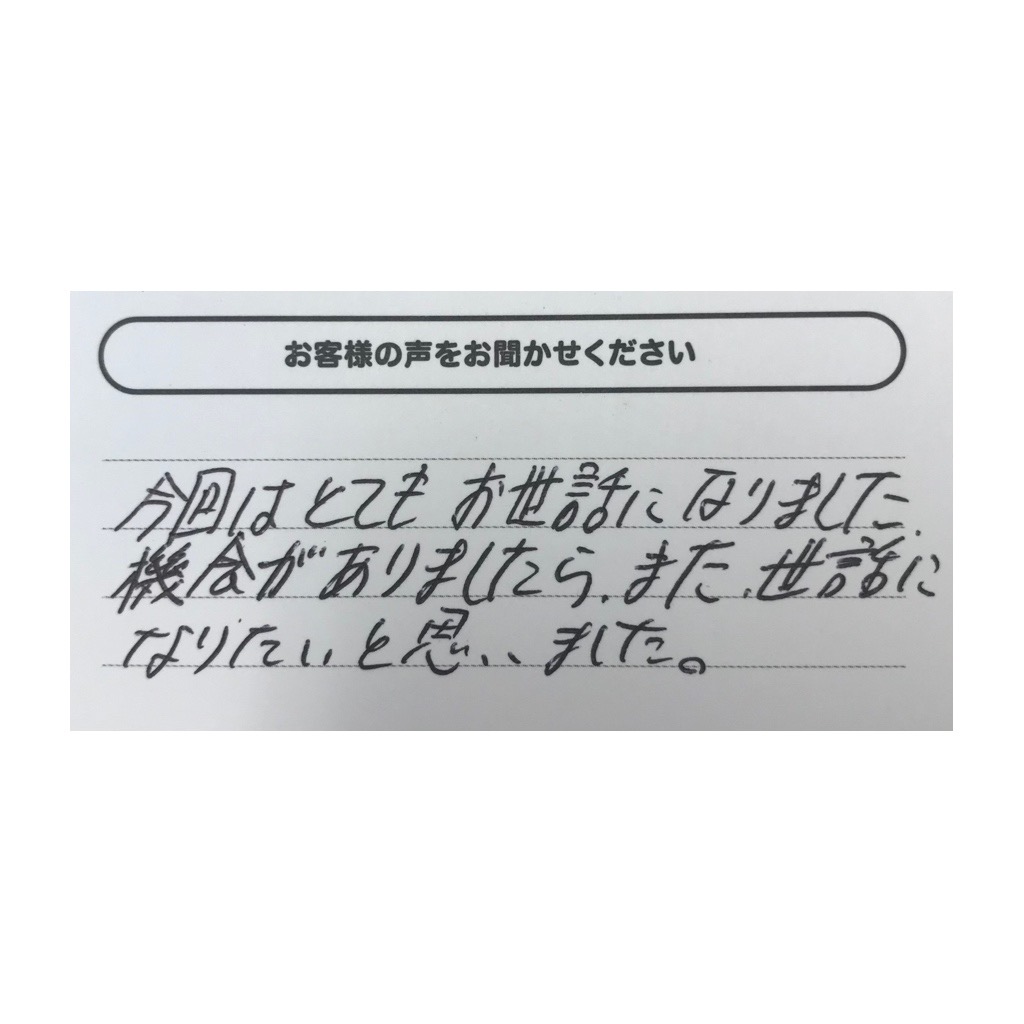 お客様の声をお聞かせください
今回はとてもお世話になりました.
機会がありましたら、また、世話に
なりたいと思いました。